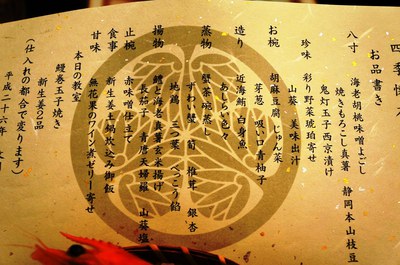 お品書き
八寸 海老胡桃味噌よごし
焼きもろこし真薯 静岡本山枝豆
鬼灯玉子西京漬け
珍味 彩り野菜琥珀寄せ
山葵 美味出汁
お椀 胡麻豆腐 じゅん菜
芽葱 吸い口青柚子
造り 近海鮪 白身魚
あしらい色々
蒸物 蟹茶碗蒸し
ずわい蟹 筍 椎茸 銀杏
地鶏 三つ葉 べっこう餡
揚物 鱧と海老真薯玄米揚げ
長茄子 青唐天婦羅 山葵塩
止椀 赤味噌仕立て
食事 新生姜土鍋炊込み御飯
甘味 無花果のワイン煮ゼリー寄せ
本日の教室
新生姜2品
鰻巻玉子焼き
(仕入れの都合で変ります)
平成二十六年